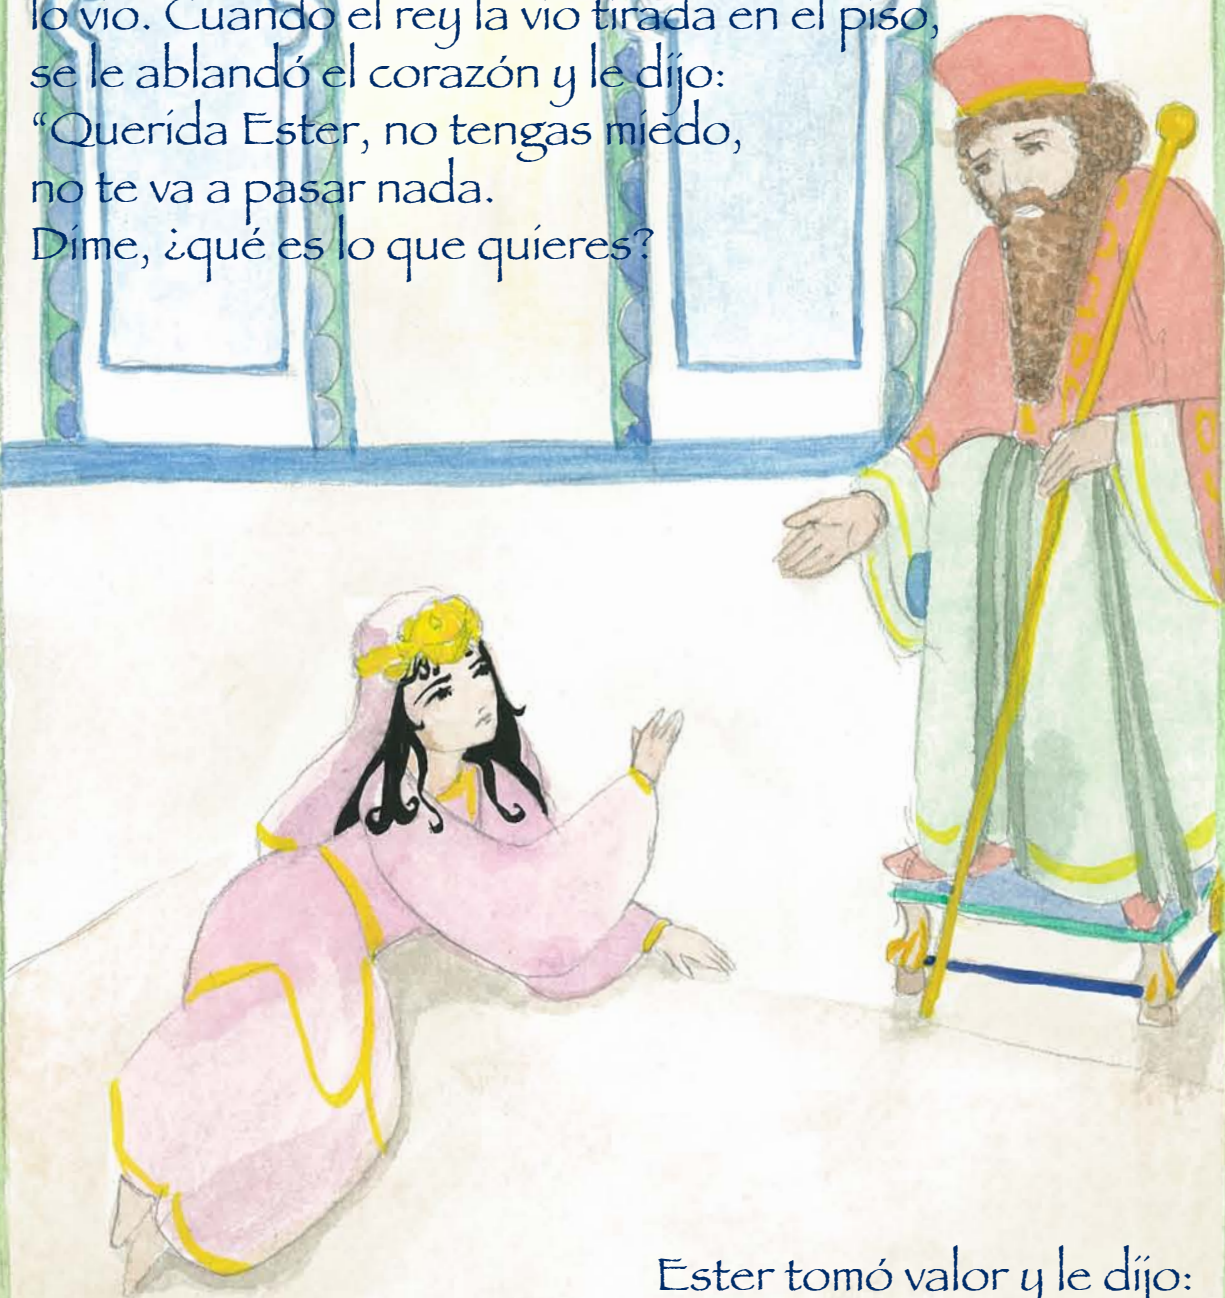 lo vio. Cuando el rey la vio tirada en el piso,
se le ablandó el corazón y le dijo:
“Querida Ester, no tengas miedo,
no te va a pasar nada.
Dime, ¿qué es lo que quieres?
Ester tomó valor y le dijo: